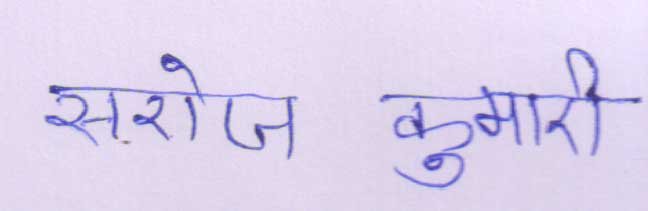 सरोज कुमारी